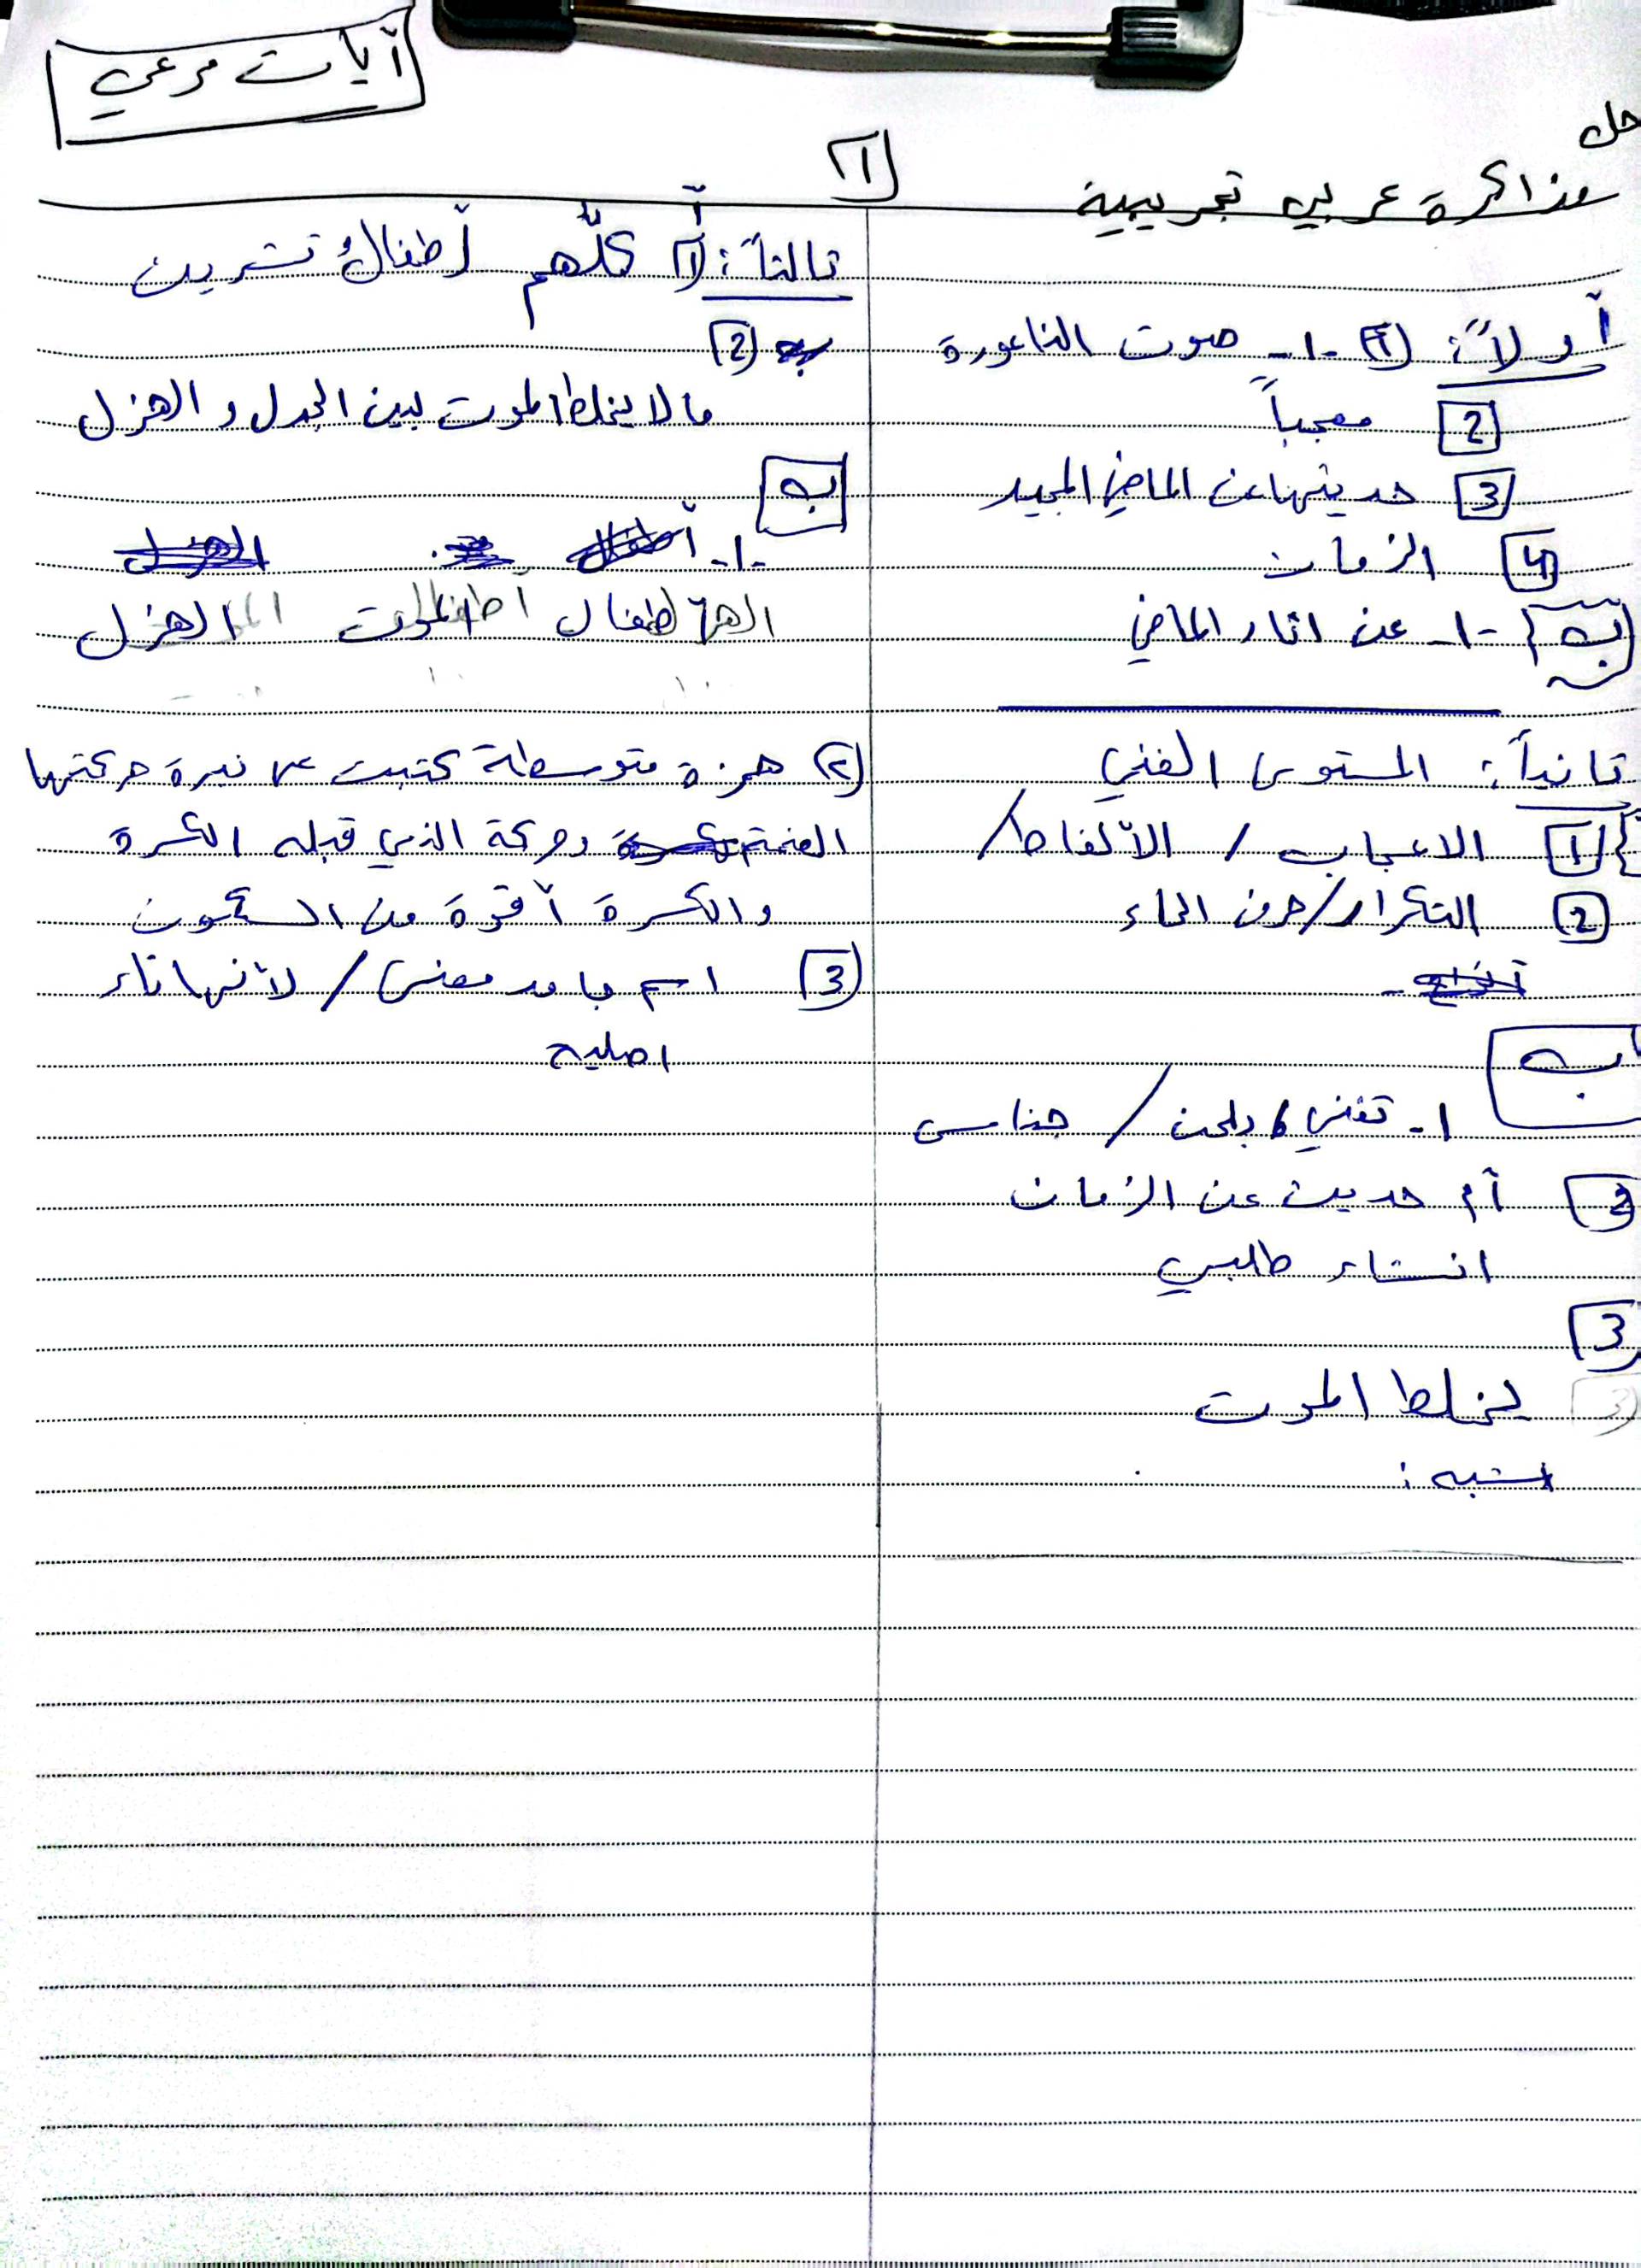 آيات مرعي
حل
مذاكرة عربي تجريبية
أولاً: (أ) -١- صوت الناعورة
2 معجباً
3 حديثها عن الماضي المجيد
4 الزمان
ب -١- عن اثار الماضي
ثانياً: المستوى الفني
1 الاعجاب / الألفاظ /
2 التكرار / حرف الحاء
ب
١- تغني، بلحن / جناس
2 أم حديث عن الزمان
انشاء طلبي
3
يخلط الموت
شبه:
ثالثاً: أ ١ كلّهم أطفالُ تشرين
2
ما لا يخلط الموت بين الجدل و الهزل
ب
-١-
أطفال الموت الهزل
(٢) همزة متوسطة كتبت على نبرة حركتها
وحركة الذي قبله الكسرة
والكسرة أقوة من السكون
3 اسم جامد معنى / لأنها تاء
اصلية